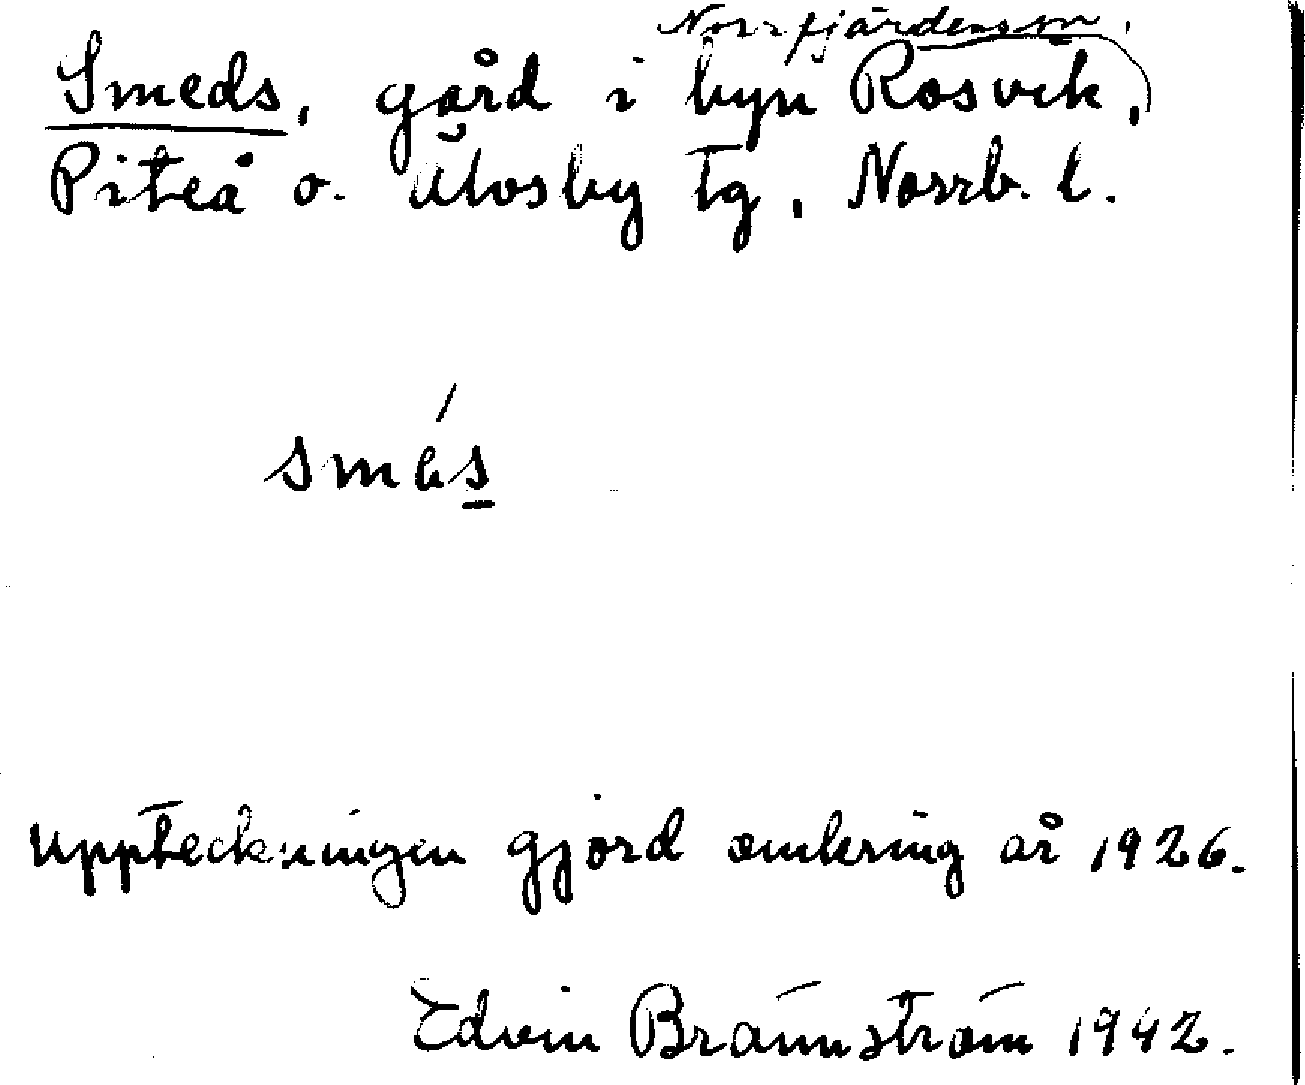 Norrfjärdens sn.
Smeds, gård i byn Rosvik,
Piteå o. Älvsby tg, Norrb. l.
smés
Uppteckningen gjord omkring år 1926.
Edvin Brännström 1942.